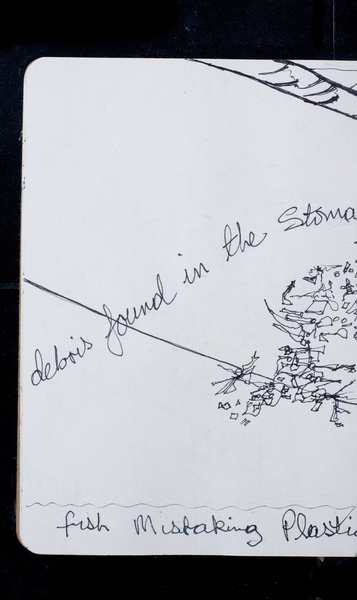 debris found in the Stoma
fish Mistaking Plastic